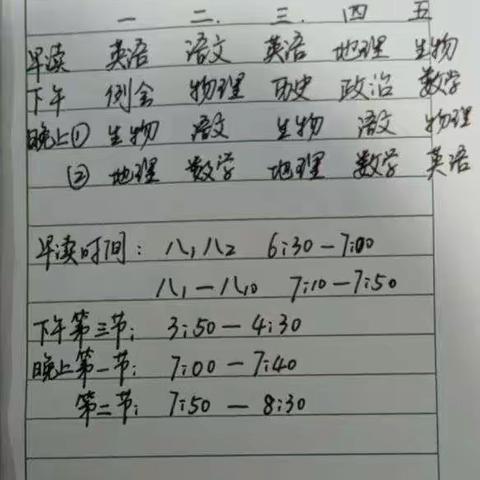 一 二. 三. 四 五
早读 英语 语文 英语 地理 生物
下午 例会 物理 历史 政治 数学
晚上① 生物 语文 生物 语文 物理
② 地理 数学 地理 数学 英语
早读时间: 八1八2 6:30-7:00
八1一八10 7:10-7:50
下午第三节: 3:50-4:30
晚上第一节: 7:00-7:40
第二节: 7:50-8:30